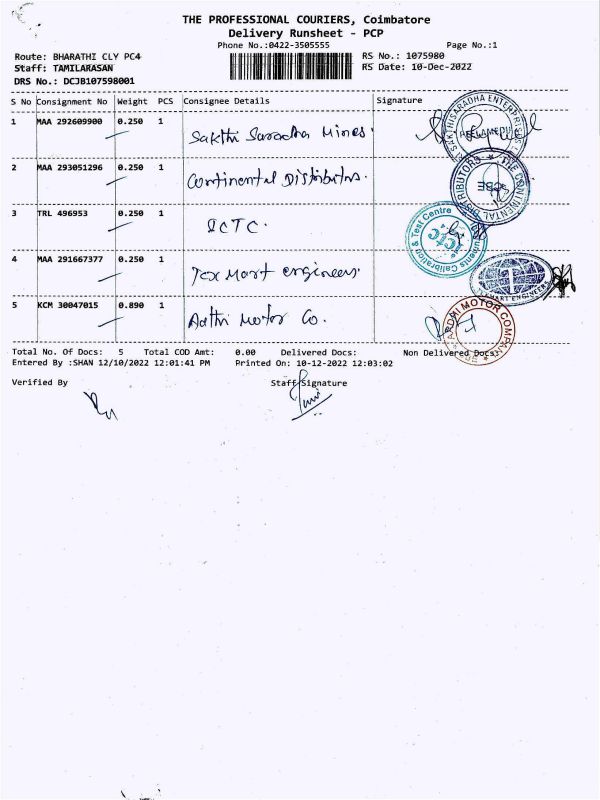 THE PROFESSIONAL COURIERS, Coimbatore
Delivery Runsheet - PCP
Phone No.:0422-3505555 Page No.:1
Route: BHARATHI CLY PC4 RS No.: 1075980
Staff: TAMILARASAN RS Date: 10-Dec-2022
DRS No.: DCJB107598001
S No Consignment No Weight PCS Consignee Details Signature
1 MAA 292609900 0.250 1 Sakthi Saradha Mines.
2 MAA 293051296 0.250 1 Continental Distributors.
3 TRL 496953 0.250 1 ICTC.
4 MAA 291667377 0.250 1 Tex Mart engineers.
5 KCM 30047015 0.890 1 Aathi Motor Co.
SAKTHISARADHA ENTERPRISES
PEELAMEDU
THE CONTINENTAL DISTRIBUTORS
CBE
Instruments Calibration & Test Centre
ictc
TEXMART ENGINEERS
AADHI MOTOR COMPANY
Total No. Of Docs: 5 Total COD Amt: 0.00 Delivered Docs: Non Delivered Docs:
Entered By :SHAN 12/10/2022 12:01:41 PM Printed On: 10-12-2022 12:03:02
Verified By Staff Signature